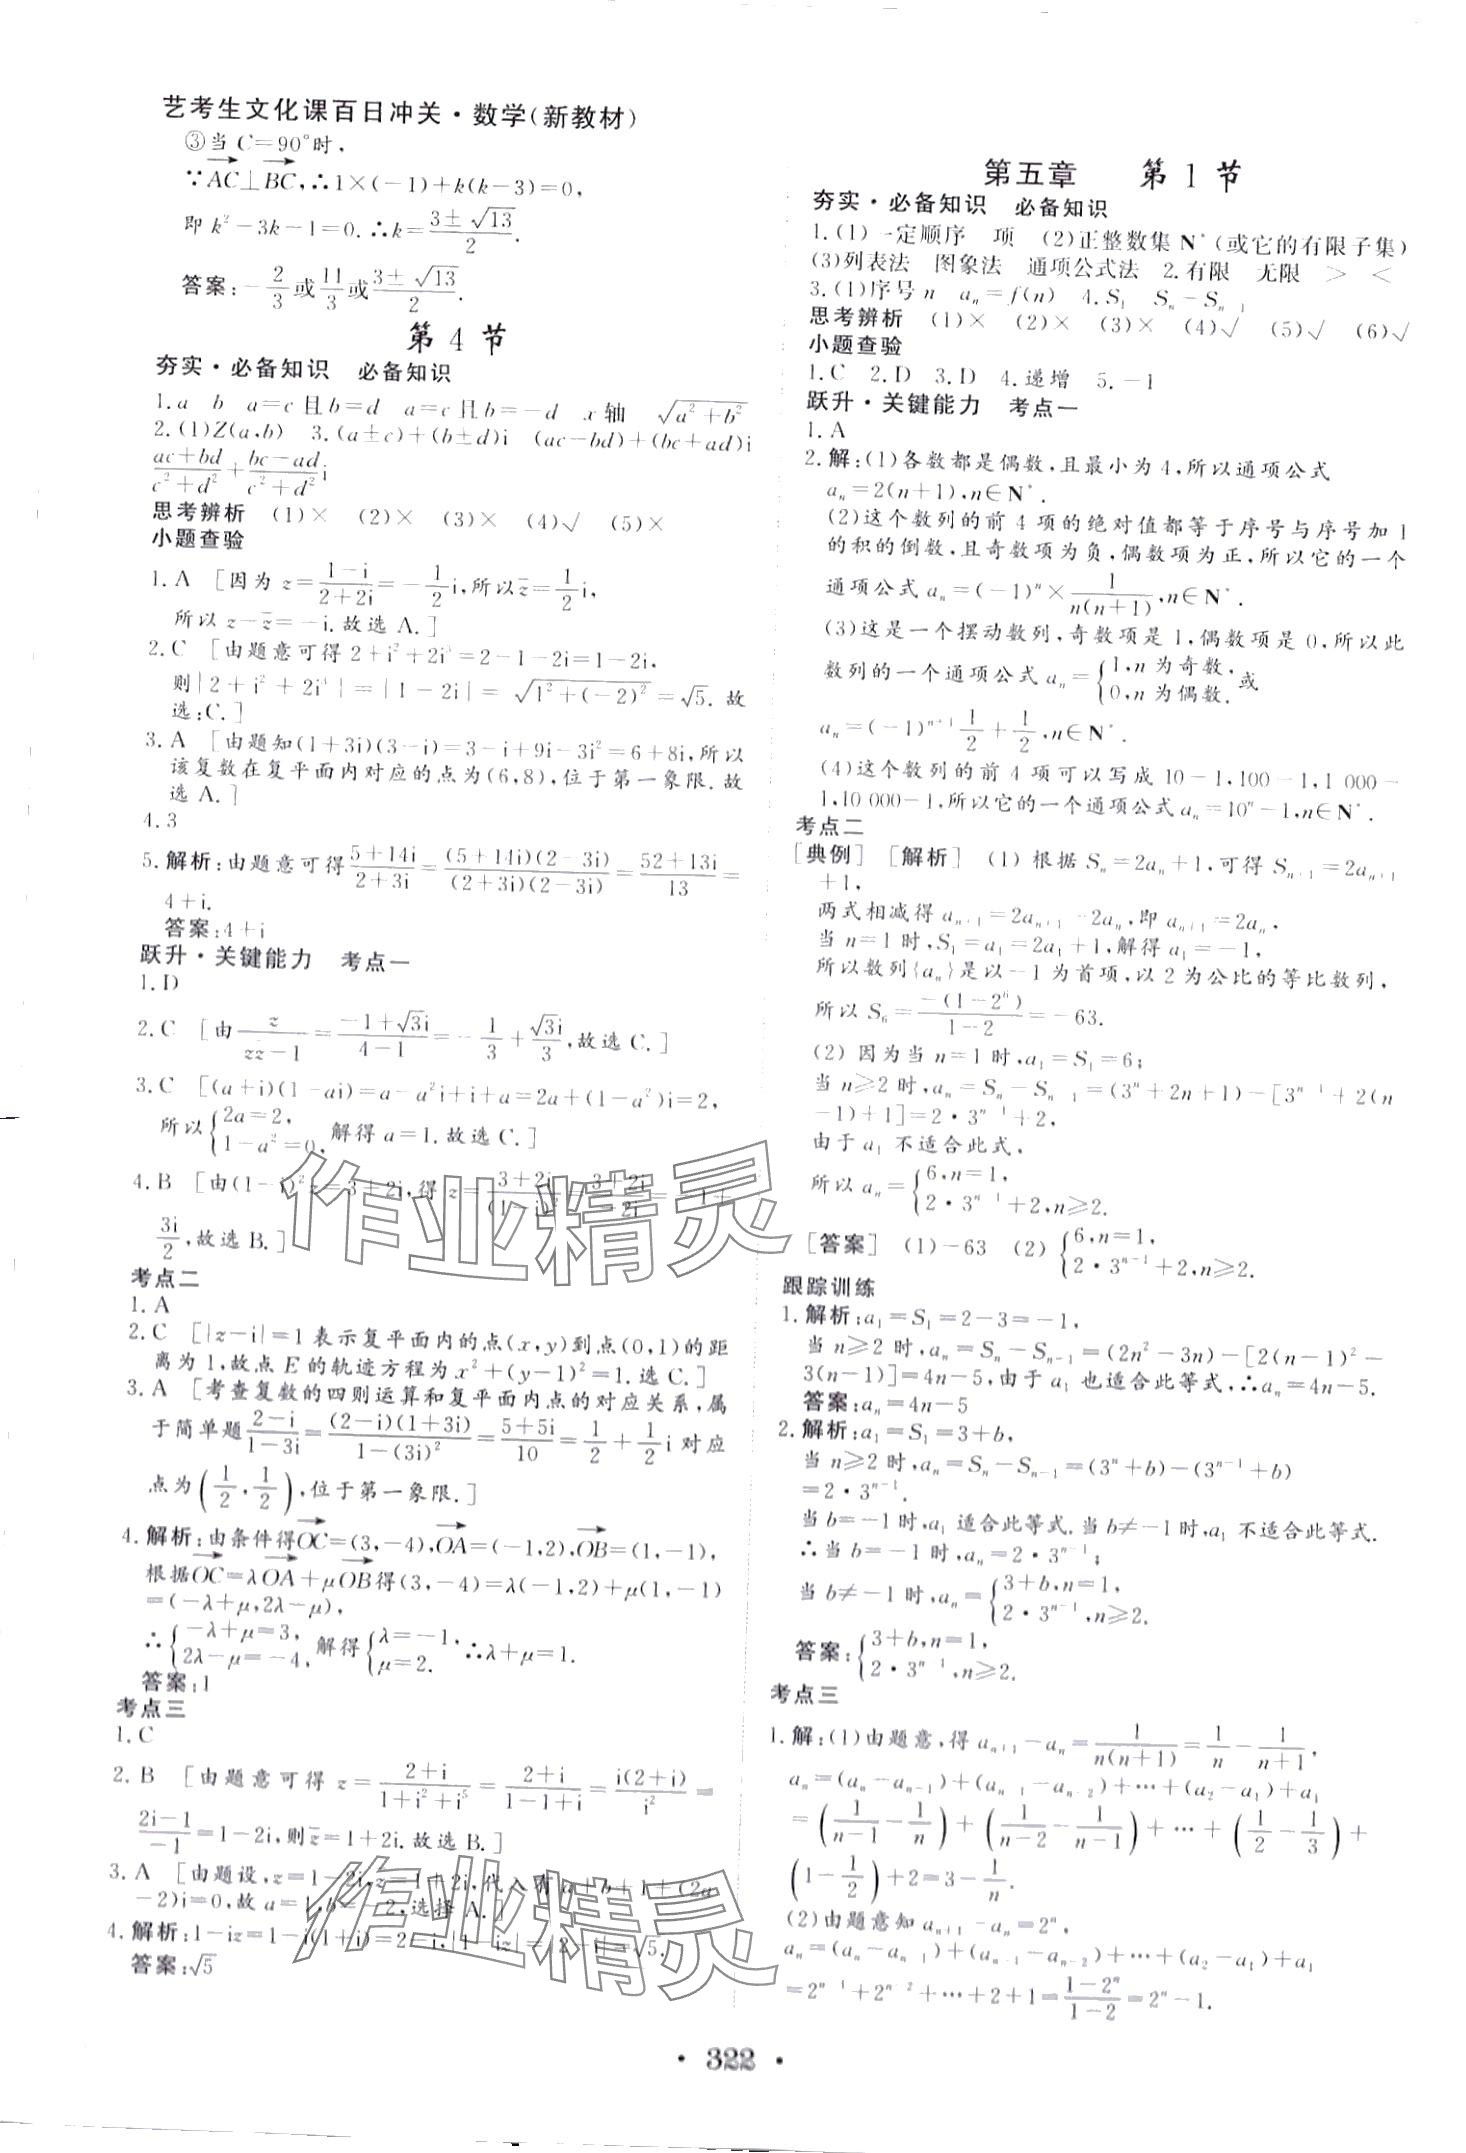 艺考生文化课百日冲关·数学(新教材)
③当 C=90°时,
∵AC⊥BC,∴1×(-1)+k(k-3)=0,
即 k²-3k-1=0.∴k=(3±√13)/2.
答案:-2/3或11/3或(3±√13)/2.
第 4 节
夯实·必备知识 必备知识
1.a b a=c 且 b=d a=c 且 b=-d x 轴 √(a²+b²)
2.(1)Z(a,b) 3.(a±c)+(b±d)i (ac-bd)+(bc+ad)i
(ac+bd)/(c²+d²)+(bc-ad)/(c²+d²)i
思考辨析 (1)× (2)× (3)× (4)√ (5)×
小题查验
1.A [因为 z=(1-i)/(2+2i)=-1/2 i,所以z̄=1/2 i,
所以 z-z̄=-i.故选 A.]
2.C [由题意可得 2+i²+2i³=2-1-2i=1-2i,
则|2+i²+2i³|=|1-2i|=√(1²+(-2)²)=√5.故
选:C.]
3.A [由题知(1+3i)(3-i)=3-i+9i-3i²=6+8i,所以
该复数在复平面内对应的点为(6,8),位于第一象限.故
选 A.]
4.3
5.解析:由题意可得(5+14i)/(2+3i)=(5+14i)(2-3i)/(2+3i)(2-3i)=(52+13i)/13=
4+i.
答案:4+i
跃升·关键能力 考点一
1.D
2.C [由z/(zz̄-1)=(-1+√3i)/(4-1)=-1/3+√3i/3,故选 C.]
3.C [(a+i)(1-ai)=a-a²i+i+a=2a+(1-a²)i=2,
所以{2a=2, 1-a²=0, 解得 a=1.故选 C.]
4.B [由(1-i)²z=3+2i,得 z=(3+2i)/(1-i)²=(3+2i)/(-2i)=-1+
3i/2,故选 B.]
考点二
1.A
2.C [|z-i|=1 表示复平面内的点(x,y)到点(0,1)的距
离为 1,故点 E 的轨迹方程为 x²+(y-1)²=1.选 C.]
3.A [考查复数的四则运算和复平面内点的对应关系,属
于简单题(2-i)/(1-3i)=(2-i)(1+3i)/(1-(3i)²)=(5+5i)/10=1/2+1/2 i 对应
点为(1/2,1/2),位于第一象限.]
4.解析:由条件得OC=(3,-4),OA=(-1,2),OB=(1,-1),
根据OC=λOA+μOB得(3,-4)=λ(-1,2)+μ(1,-1)
=(-λ+μ,2λ-μ),
∴{-λ+μ=3, 2λ-μ=-4, 解得{λ=-1, μ=2. ∴λ+μ=1.
答案:1
考点三
1.C
2.B [由题意可得 z=(2+i)/(1+i²+i⁵)=(2+i)/(1-1+i)=i(2+i)/i²=
(2i-1)/-1=1-2i,则z̄=1+2i.故选 B.]
3.A [由题设,z=1-2i,z̄=1+2i,代入有 a+b+1+(2a
-2)i=0,故 a=1,b=-2,选择 A.]
4.解析:1-iz=1-i(1+i)=2-i,|1-iz|=|2-i|=√5.
答案:√5
第五章 第 1 节
夯实·必备知识 必备知识
1.(1)一定顺序 项 (2)正整数集 N*(或它的有限子集)
(3)列表法 图象法 通项公式法 2.有限 无限 > <
3.(1)序号 n aₙ=f(n) 4.S₁ Sₙ-Sₙ₋₁
思考辨析 (1)× (2)× (3)× (4)√ (5)√ (6)√
小题查验
1.C 2.D 3.D 4.递增 5.-1
跃升·关键能力 考点一
1.A
2.解:(1)各数都是偶数,且最小为 4,所以通项公式
aₙ=2(n+1),n∈N*.
(2)这个数列的前 4 项的绝对值都等于序号与序号加 1
的积的倒数,且奇数项为负,偶数项为正,所以它的一个
通项公式 aₙ=(-1)ⁿ×1/n(n+1),n∈N*.
(3)这是一个摆动数列,奇数项是 1,偶数项是 0,所以此
数列的一个通项公式 aₙ={1,n 为奇数, 0,n 为偶数. 或
aₙ=(-1)ⁿ⁺¹1/2+1/2,n∈N*.
(4)这个数列的前 4 项可以写成 10-1,100-1,1 000-
1,10 000-1,所以它的一个通项公式 aₙ=10ⁿ-1,n∈N*.
考点二
[典例] [解析] (1)根据 Sₙ=2aₙ+1,可得 Sₙ₊₁=2aₙ₊₁
+1,
两式相减得 aₙ₊₁=2aₙ₊₁-2aₙ,即 aₙ₊₁=2aₙ,
当 n=1 时,S₁=a₁=2a₁+1,解得 a₁=-1,
所以数列{aₙ}是以-1 为首项,以 2 为公比的等比数列,
所以 S₆=-(1-2⁶)/(1-2)=-63.
(2)因为当 n=1 时,a₁=S₁=6;
当 n≥2 时,aₙ=Sₙ-Sₙ₋₁=(3ⁿ+2n+1)-[3ⁿ⁻¹+2(n
-1)+1]=2·3ⁿ⁻¹+2,
由于 a₁ 不适合此式,
所以 aₙ={6,n=1, 2·3ⁿ⁻¹+2,n≥2.
[答案] (1)-63 (2){6,n=1, 2·3ⁿ⁻¹+2,n≥2.
跟踪训练
1.解析:a₁=S₁=2-3=-1,
当 n≥2 时,aₙ=Sₙ-Sₙ₋₁=(2n²-3n)-[2(n-1)²-
3(n-1)]=4n-5,由于 a₁ 也适合此等式,∴aₙ=4n-5.
答案:aₙ=4n-5
2.解析:a₁=S₁=3+b,
当 n≥2 时,aₙ=Sₙ-Sₙ₋₁=(3ⁿ+b)-(3ⁿ⁻¹+b)
=2·3ⁿ⁻¹.
当 b=-1 时,a₁ 适合此等式.当 b≠-1 时,a₁ 不适合此等式.
∴当 b=-1 时,aₙ=2·3ⁿ⁻¹;
当 b≠-1 时,aₙ={3+b,n=1, 2·3ⁿ⁻¹,n≥2.
答案:{3+b,n=1, 2·3ⁿ⁻¹,n≥2.
考点三
1.解:(1)由题意,得 aₙ₊₁-aₙ=1/n(n+1)=1/n-1/(n+1),
aₙ=(aₙ-aₙ₋₁)+(aₙ₋₁-aₙ₋₂)+⋯+(a₂-a₁)+a₁
=(1/(n-1)-1/n)+(1/(n-2)-1/(n-1))+⋯+(1/2-1/3)+
(1-1/2)+2=3-1/n.
(2)由题意知 aₙ₊₁-aₙ=2ⁿ,
aₙ=(aₙ-aₙ₋₁)+(aₙ₋₁-aₙ₋₂)+⋯+(a₂-a₁)+a₁
=2ⁿ⁻¹+2ⁿ⁻²+⋯+2+1=(1-2ⁿ)/(1-2)=2ⁿ-1.
·322·
作业精灵
作业精灵